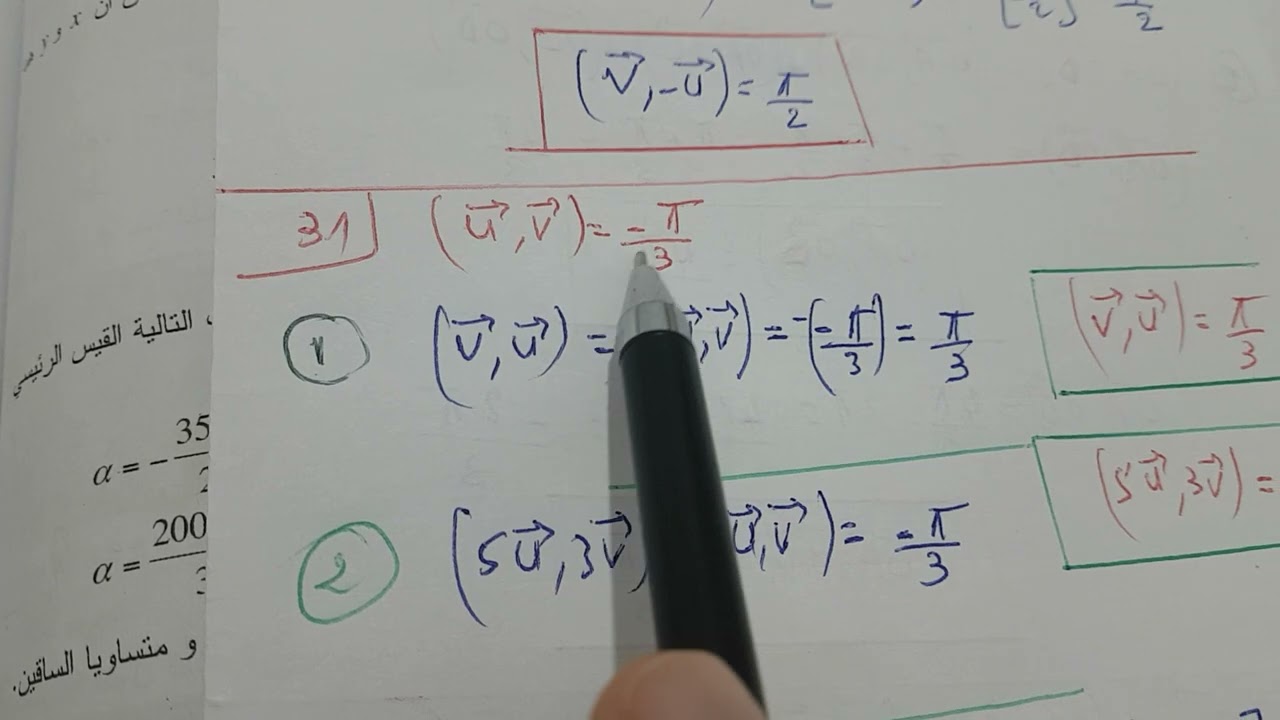 [2] π/2
(v⃗, -u⃗) = π/2
31 (u⃗, v⃗) = -π/3
1 (v⃗, u⃗) = , v⃗) = -(-π/3) = π/3
(v⃗, u⃗) = π/3
2 (5u⃗, 3v⃗ u⃗, v⃗) = -π/3
(5u⃗, 3v⃗) =
التالية القيس الرئيسي
α = - 35
α = 200
و متساويا الساقين.